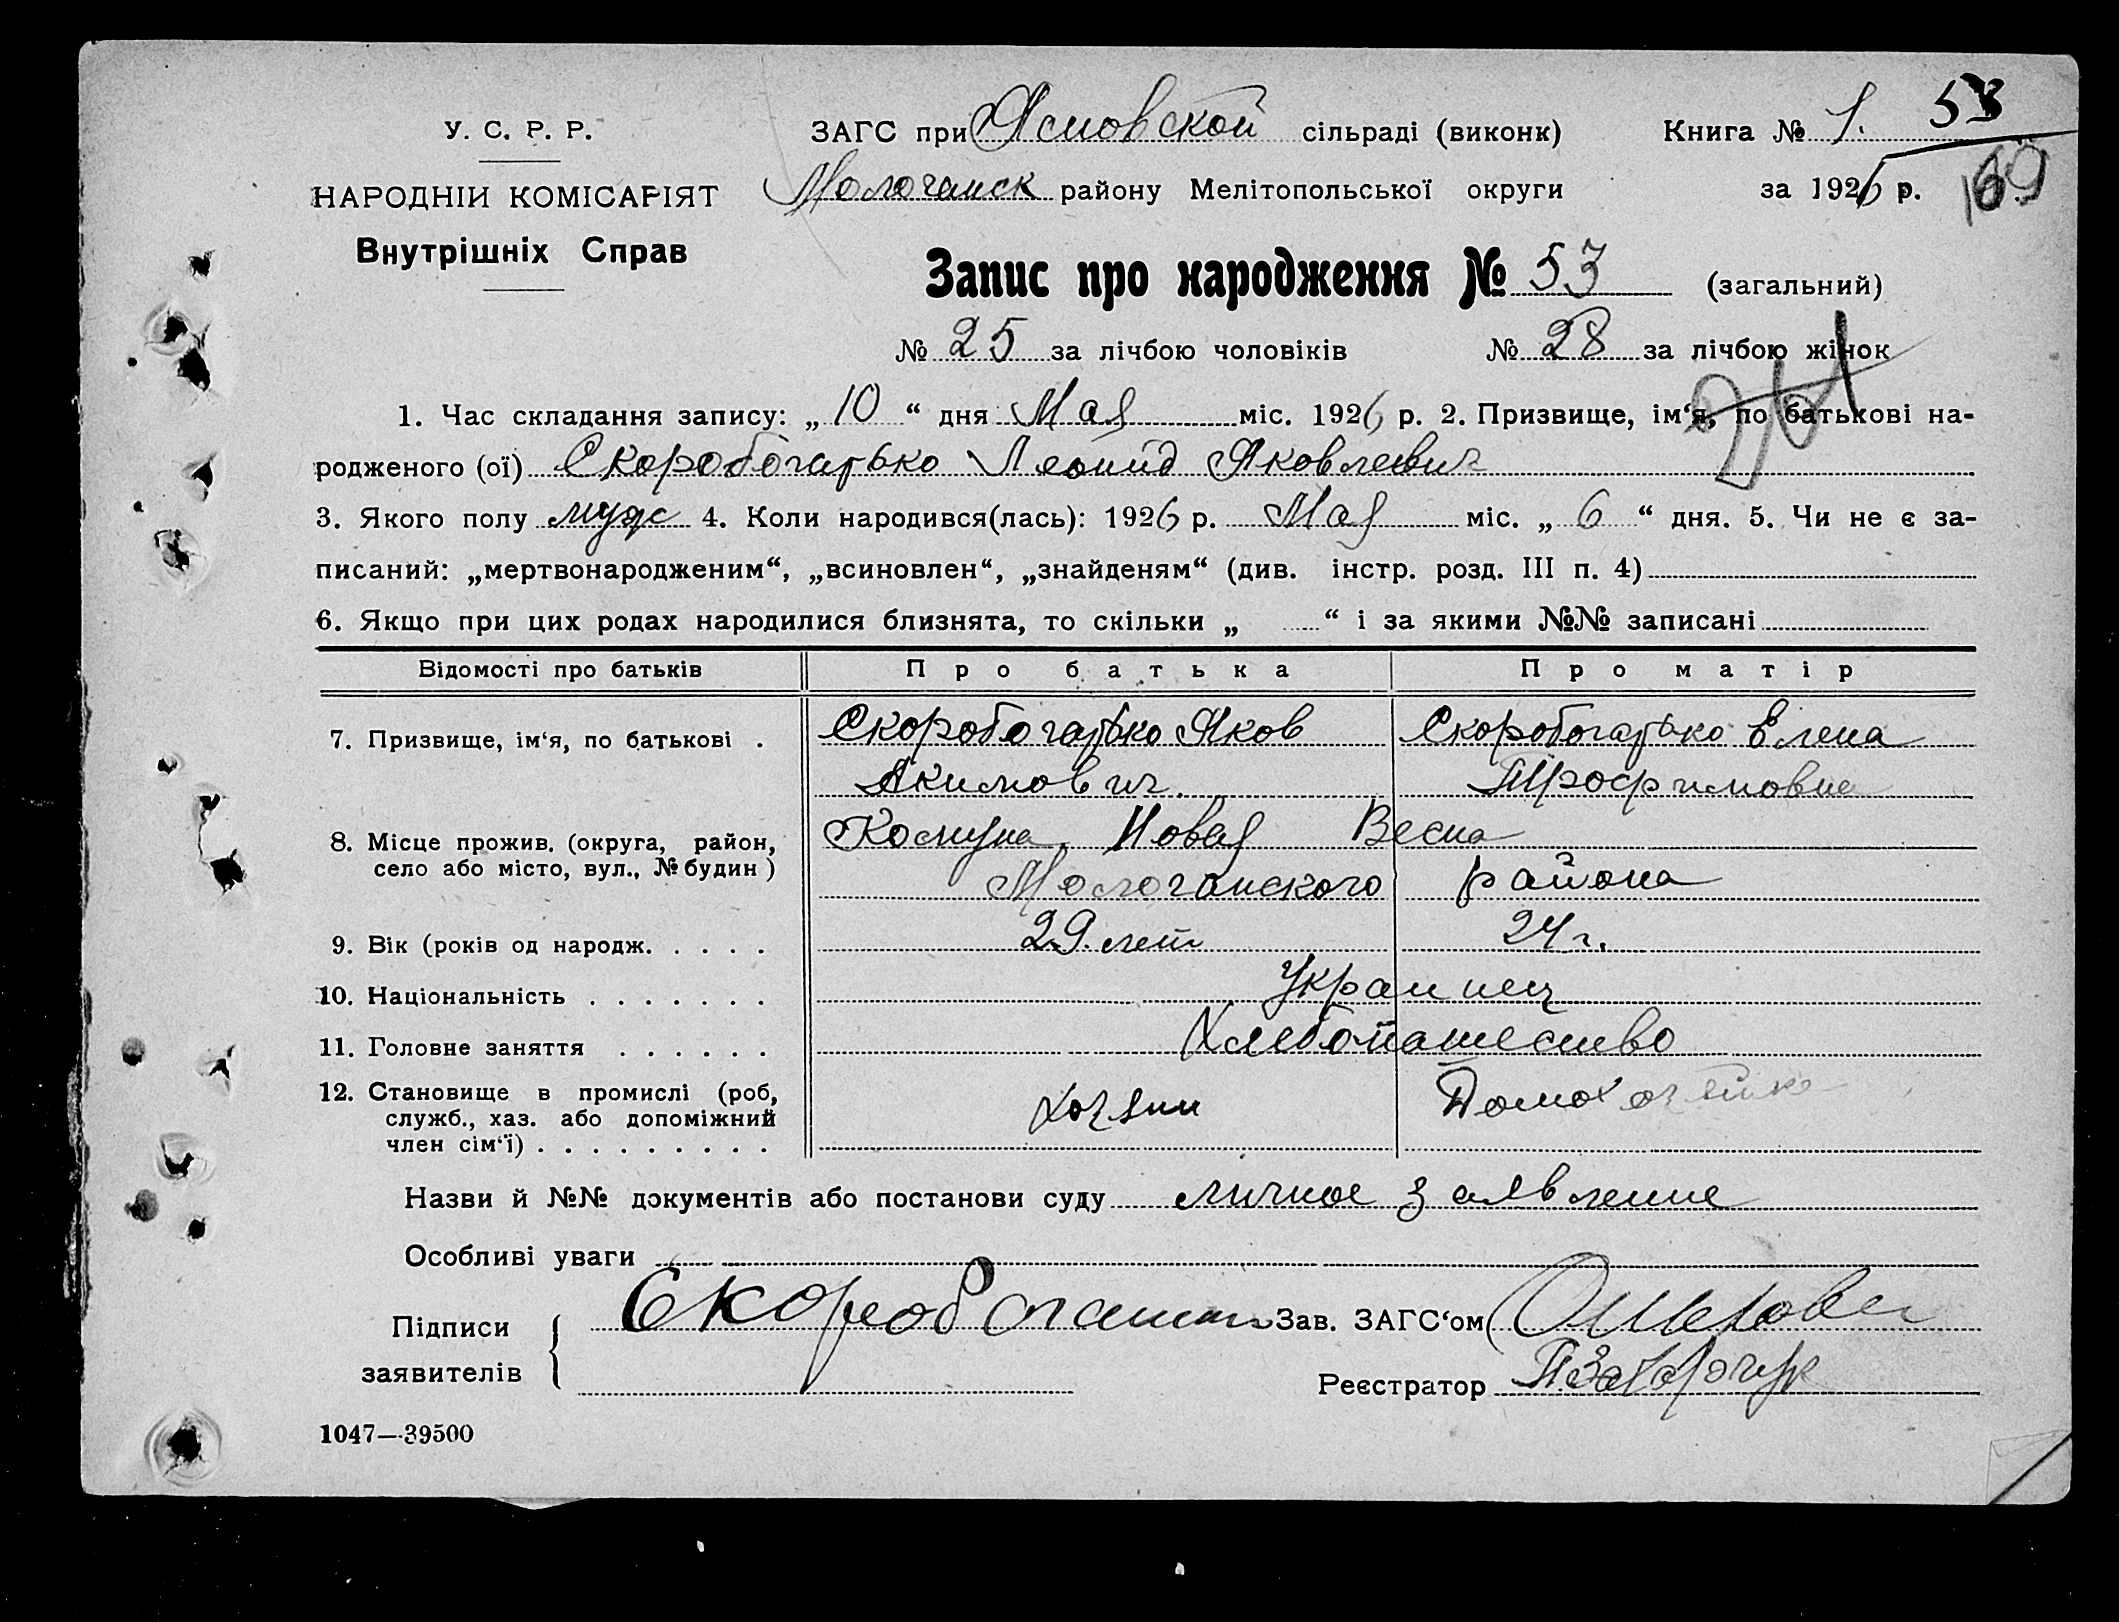 У. С. Р. Р.
НАРОДНІЙ КОМІСАРІЯТ
Внутрішніх Справ
ЗАГС при Ясмовской сільраді (виконк)
Молочанск району Мелітопольської округи
Книга № 1.
53
за 1926 р.
169
Запис про народження № 53 (загальний)
№ 25 за лічбою чоловіків № 28 за лічбою жінок
1. Час складання запису: „ 10 “ дня Мая міс. 1926 р. 2. Призвище, ім‘я, по батькові на-
родженого (ої) Скоробогатько Леонид Яковлевич
3. Якого полу муж 4. Коли народився(лась): 1926 р. Мая міс. „ 6 “ дня. 5. Чи не є за-
писаний: „мертвонародженим“, „всиновлен“, „знайденям“ (див. інстр. розд. III п. 4)
6. Якщо при цих родах народилися близнята, то скільки „ “ і за якими №№ записані
Відомості про батьків Про батька Про матір
7. Призвище, ім‘я, по батькові . Скоробогатько Яков Скоробогатько Елена
Акимович. Трофимовна
8. Місце прожив. (округа, район, село або місто, вул., № будин) Комуна Новая Весна
Молочанского района
9. Вік (років од народж. . . . . 29 лет 24 г.
10. Національність . . . . . . . Украинец
11. Головне заняття . . . . . . Хлебопашество
12. Становище в промислі (роб,
служб., хаз. або допоміжний
член сім‘ї) . . . . . . . . . Хозяин Домохозяйка
Назви й №№ документів або постанови суду личное заявление
Особливі уваги
Підписи
заявителів
Зав. ЗАГС‘ом
Реєстратор
1047—39500